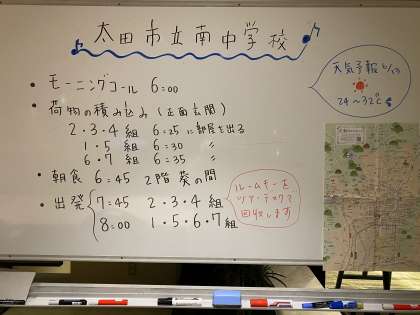 太田市立南中学校
天気予報
24〜32℃
・モーニングコール 6:00
・荷物の積み込み(正面玄関)
2・3・4組 6:25 に部屋を出る
1・5組 6:30 〃
6・7組 6:35 〃
・朝食 6:45 2階 葵の間
・出発 7:45 2・3・4組
8:00 1・5・6・7組
ルームキーを
ツアーデスクで
回収します